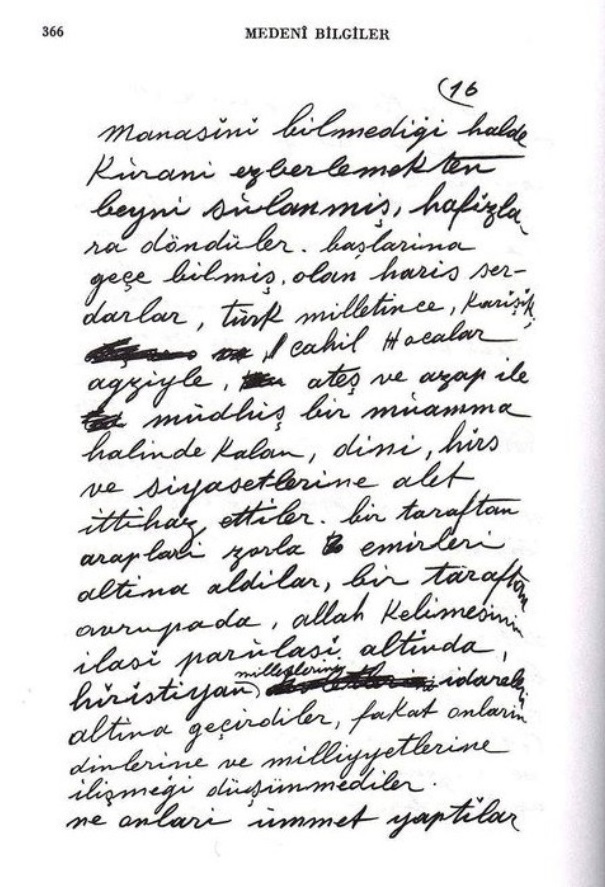 366
MEDENÎ BİLGİLER
(16
manasini bilmediği halde
Kùrani ezberlemekten
beyni sùlanmiş, hafizla
ra döndüler. başlarina
geçe bilmiş, olan haris ser-
darlar, türk milletince, Karişik,
cahil Hocalar
agziyle, ateş ve azap ile
müdhiş bir müamma
halinde Kalan, dini, hirs
ve siyasetlerine alet
ittihaz ettiler. bir taraftan
araplari zorla emirleri
altina aldilar, bir taraftan
avrupada, allah Kelimesinin
ilasi parùlasi altinda,
milletlerini
hiristiyan idareleri
altina geçirdiler, fakat onlarin
dinlerine ve milliyyetlerine
ilişmeği düşünmediler.
ne onlari ümmet yaptilar